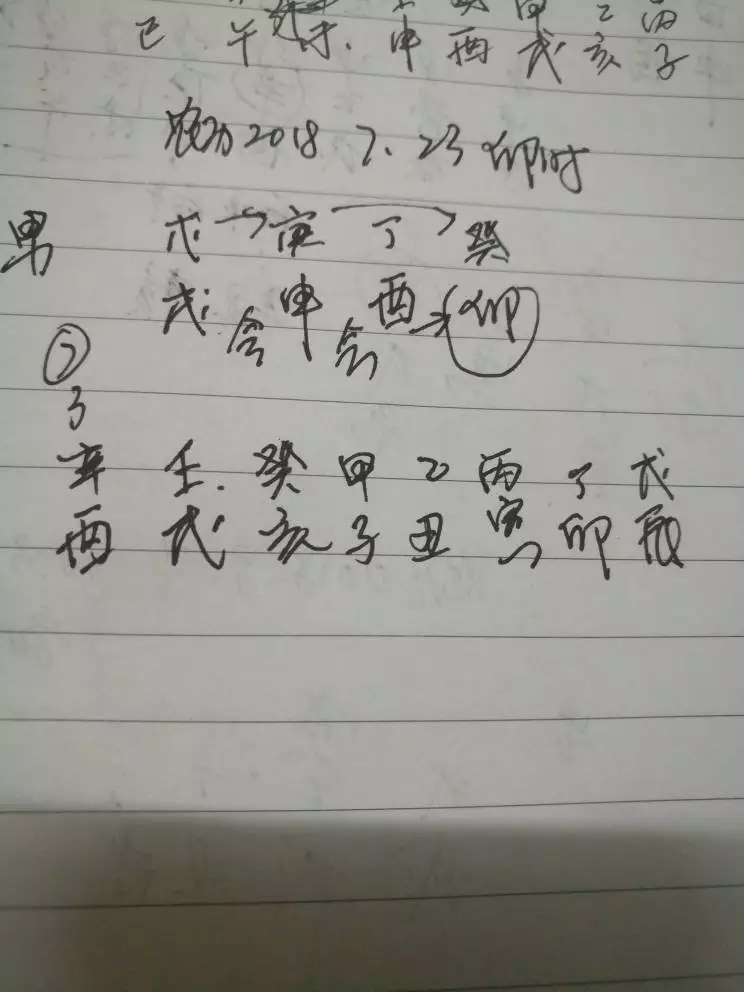 甲 乙 丙
巳 午 申 酉 戌 亥 子
农历2018 7.23 卯时
男 戊 庚 丁 癸
戌 合 申 合 酉 卯
3
辛 壬 癸 甲 乙 丙 丁 戊
酉 戌 亥 子 丑 寅 卯 辰